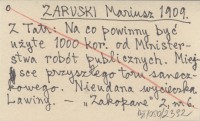 ZARUSKI Mariusz 1909.
Z Tatr: Na co powinny być
użyte 1000 kor. od Minister-
stwa robót publicznych. Miej
sce przyszłego toru sanecz-
kowego. Nieudana wycieczka
Lawiny. — „Zakopane" 2, nr 6.